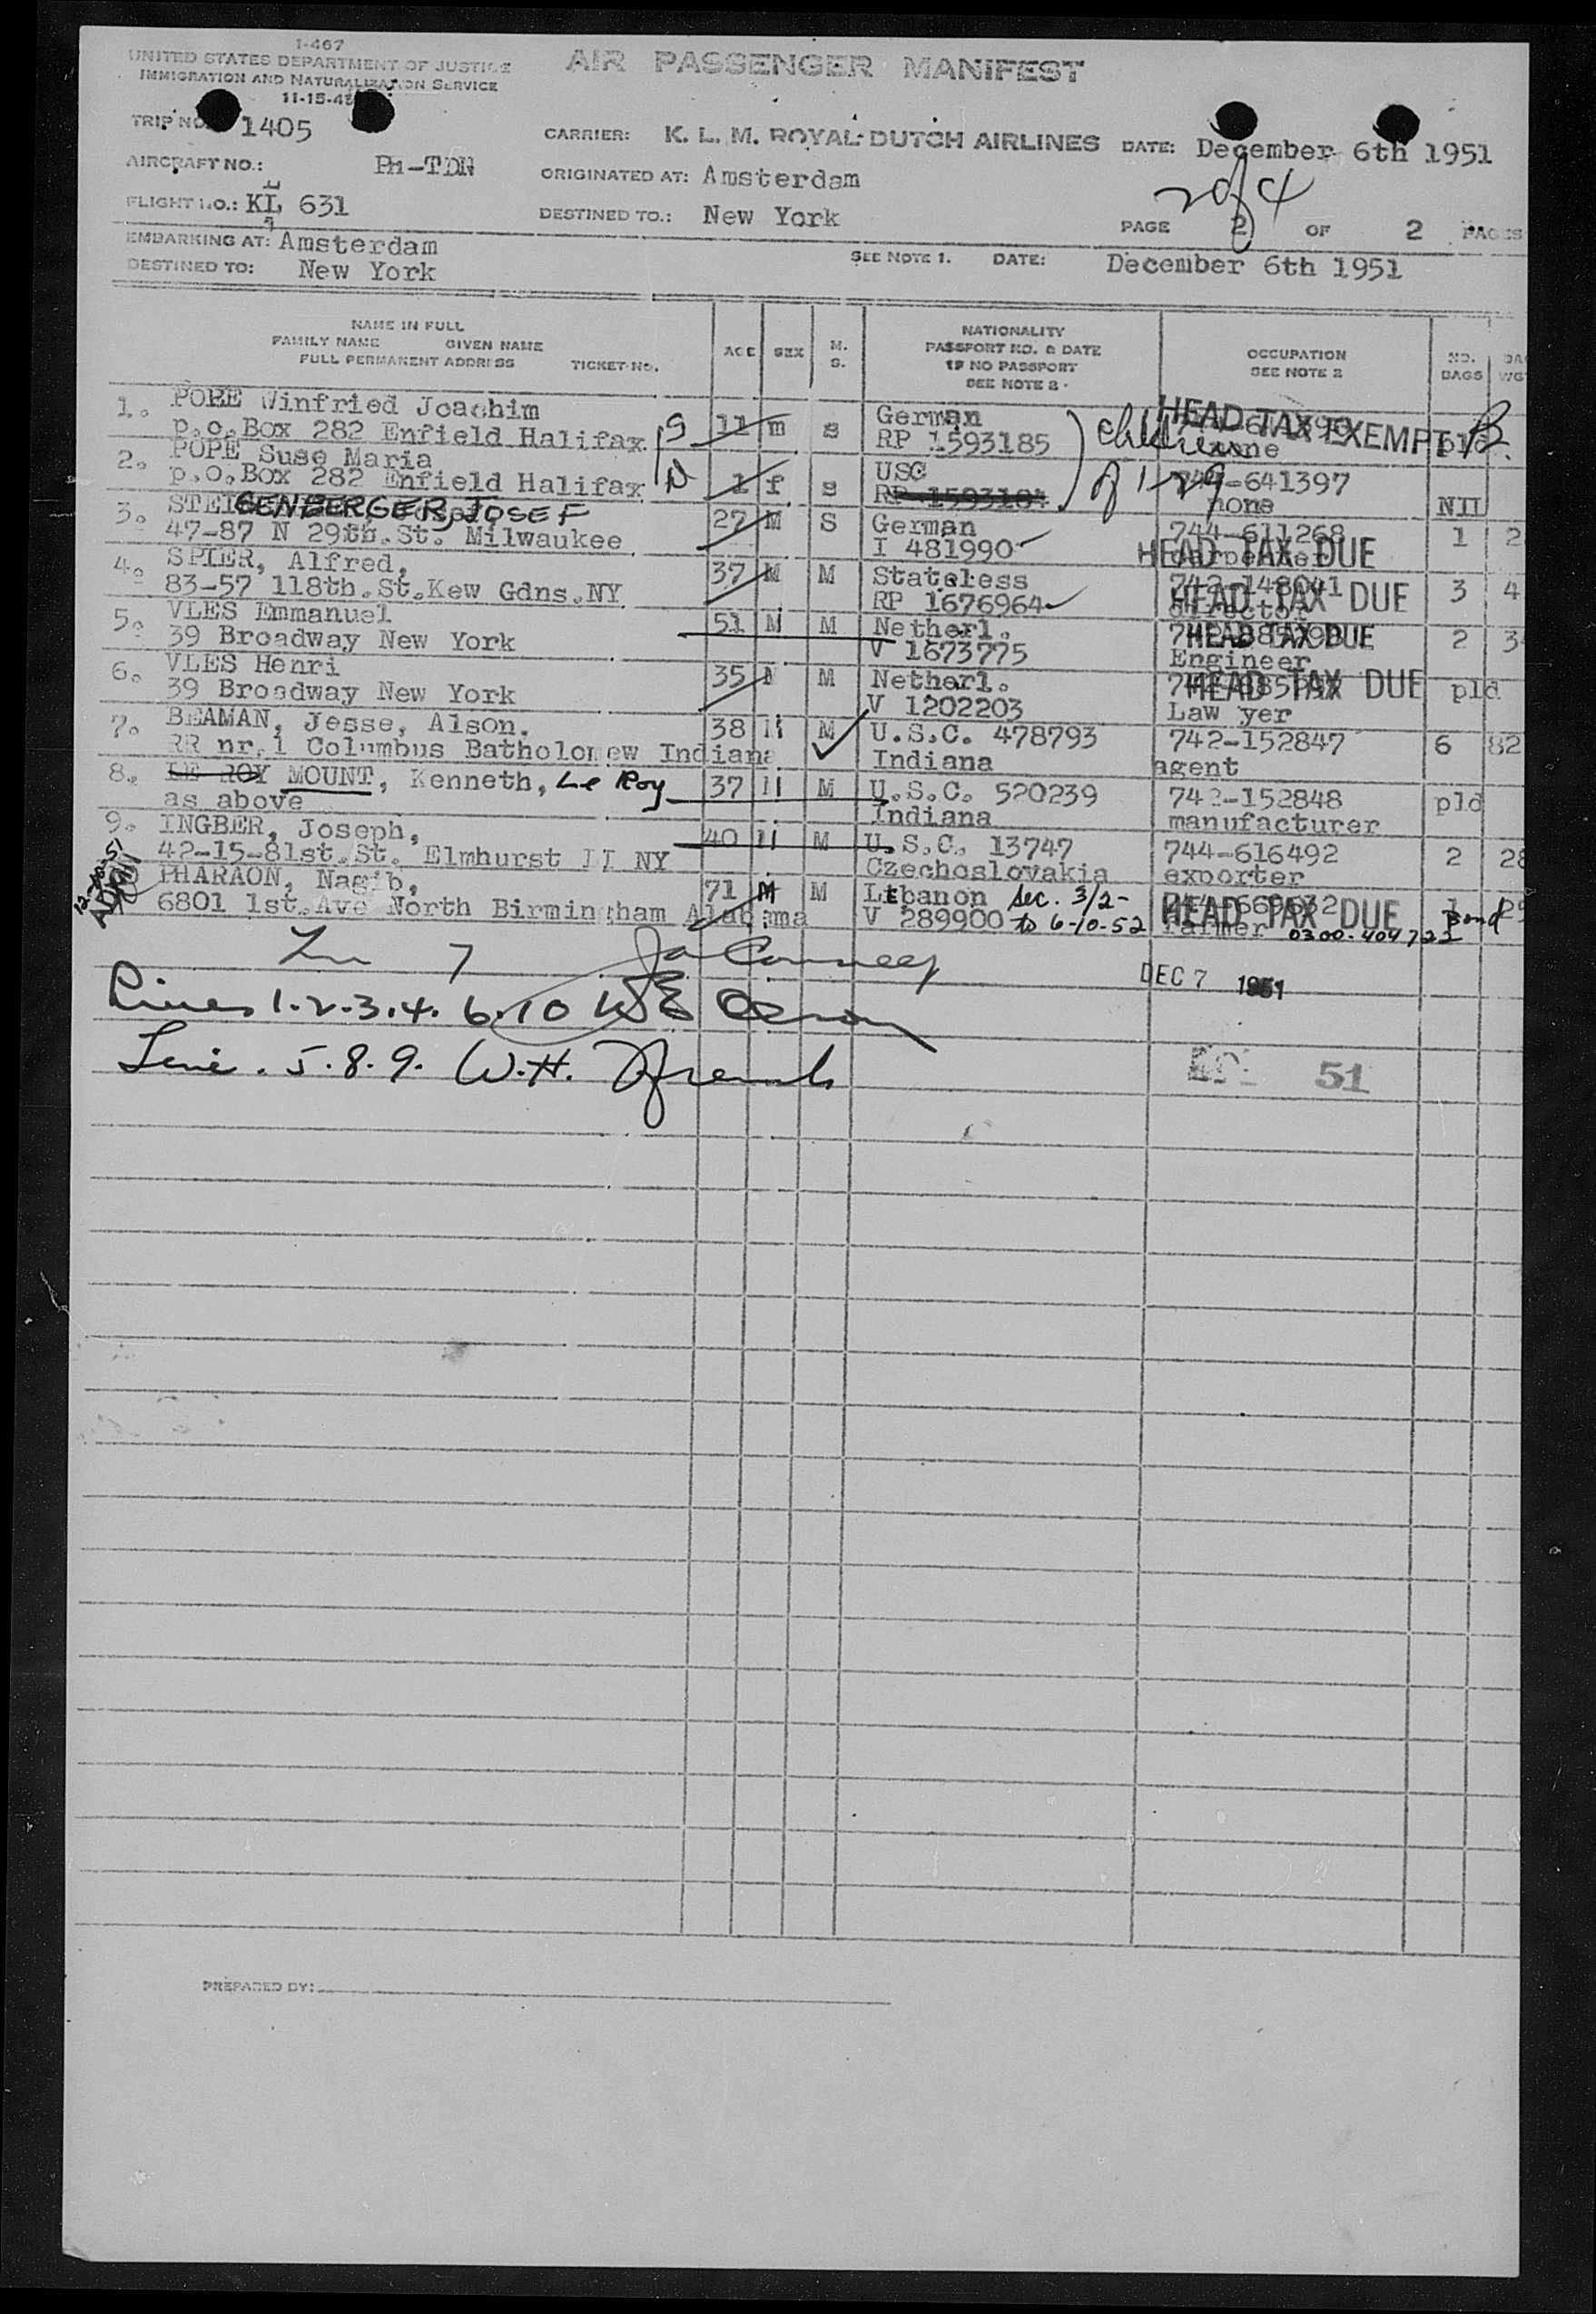 I-467
UNITED STATES DEPARTMENT OF JUSTICE
IMMIGRATION AND NATURALIZATION SERVICE
11-15-48
AIR PASSENGER MANIFEST
TRIP NO. 1405
CARRIER: K. L. M. ROYAL DUTCH AIRLINES DATE: December 6th 1951
AIRCRAFT NO.: PH-TDN
ORIGINATED AT: Amsterdam
2 of 4
FLIGHT NO.: KL 631
DESTINED TO.: New York
PAGE 2 OF 2 PAGES
EMBARKING AT: Amsterdam
DESTINED TO: New York
SEE NOTE 1. DATE: December 6th 1951
NAME IN FULL
FAMILY NAME GIVEN NAME
FULL PERMANENT ADDRESS TICKET NO.
AGE SEX M. S.
NATIONALITY
PASSPORT NO. & DATE
IF NO PASSPORT
SEE NOTE 2.
OCCUPATION
SEE NOTE 2
NO. BAGS
1. POPE Winfried Joachim 11 m s German HEAD TAX EXEMPT
p.o.Box 282 Enfield Halifax RP 1593185 none
children
2. POPE Suse Maria 1 f s USC 744-641397
p.o.Box 282 Enfield Halifax RP 1593184 none Nil
3. GENBERGER, JOSEF 27 M S German 744-611268 1 2
47-87 N 29th.St. Milwaukee I 481990 carpenter HEAD TAX DUE
4. SPIER, Alfred, 37 M M Stateless 742-148041 3 4
83-57 118th.St.Kew Gdns.NY RP 1676964 director HEAD TAX DUE
5. VLES Emmanuel 51 M M Netherl. HEAD TAX DUE 2 3
39 Broadway New York V 1673775 Engineer
6. VLES Henri 35 M M Netherl. HEAD TAX DUE pld
39 Broadway New York V 1202203 Law yer
7. BEAMAN, Jesse, Alson. 38 M M U.S.C. 478793 742-152847 6 82
RR nr.1 Columbus Batholomew Indiana Indiana agent
8. LE ROY MOUNT, Kenneth, Le Roy 37 M M U.S.C. 520239 742-152848 pld
as above Indiana manufacturer
9. INGBER, Joseph, 40 M M U.S.C. 13747 744-616492 2 28
42-15-81st.St. Elmhurst LI NY Czechoslovakia exporter
PHARAON, Nagib, 71 M M Lebanon Sec. 3/2- 744-669632 HEAD TAX DUE 1 Bond 29
6801 1st.Ave North Birmingham Alabama V 289900 to 6-10-52 farmer 0300-404722
12-10-51
ADMIT
7
DEC 7 1951
Lines 1.2.3.4. 6.10
Line. 5.8.9. W.H. French
51
PREPARED BY: